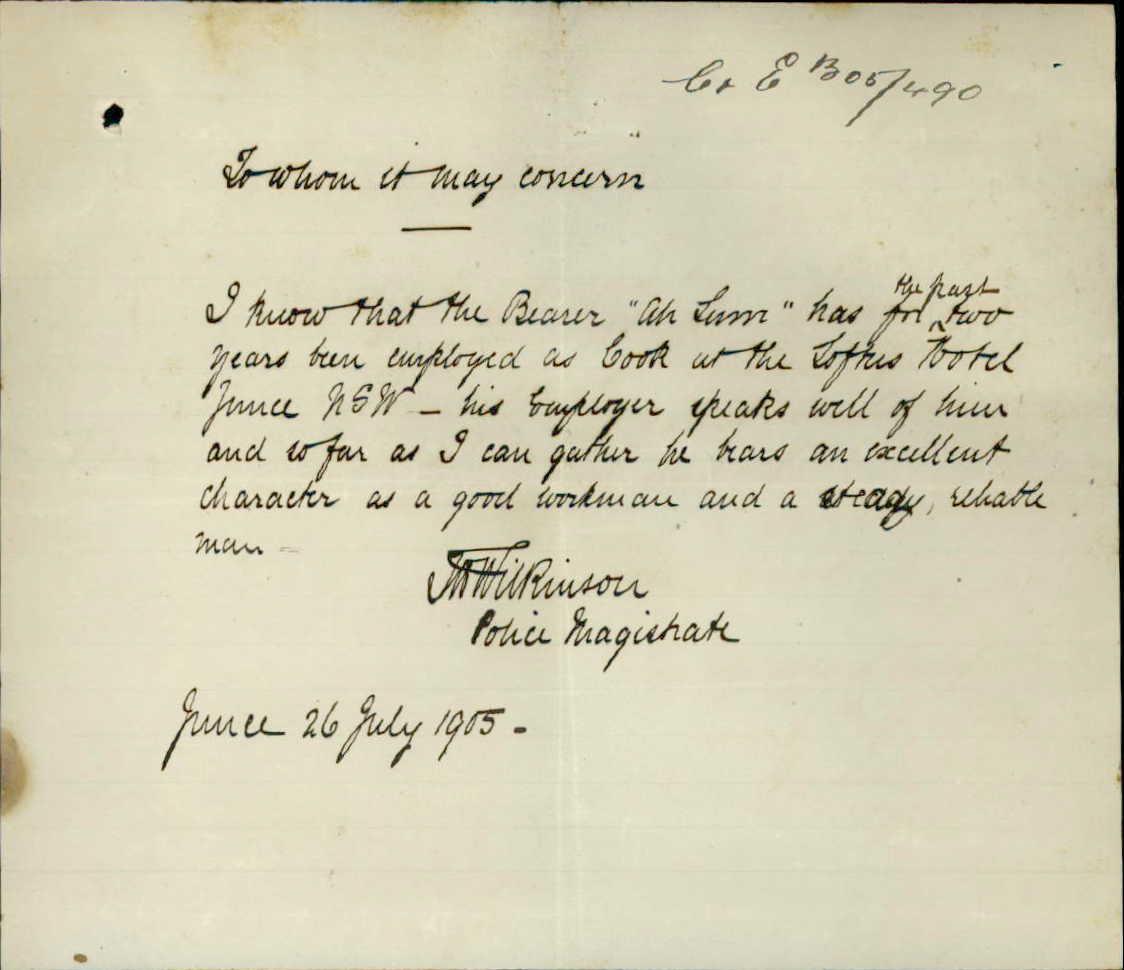 E B05/490
To whom it may concern
I know that the Bearer "Ah Lum" has for the past two
years been employed as Cook at the Loftus Hotel
Junee NSW - his Employer speaks well of him
and so far as I can gather he bears an excellent
character as a good workman and a steady, reliable
man -
Wilkinson
Police Magistrate
Junee 26 July 1905 -